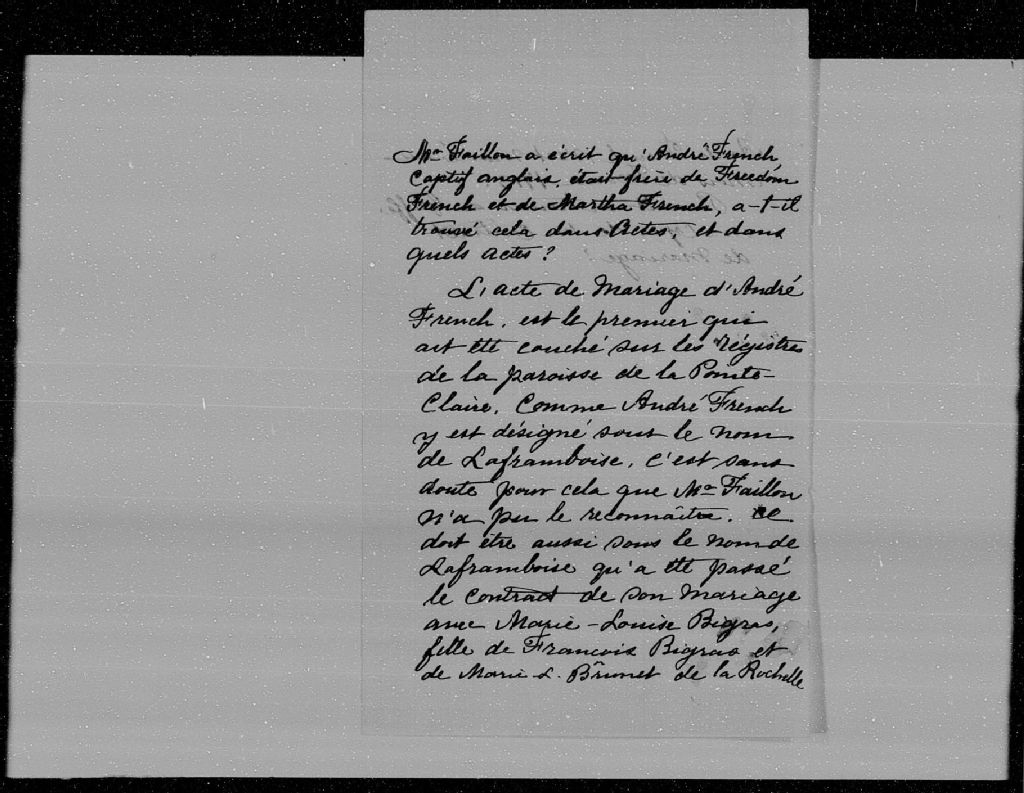 Mr Faillon a écrit qu'André French
Captif anglais, était frère de Freedom
French et de Martha French, a-t-il
trouvé cela dans Actes, et dans
quels actes?
L'acte de Mariage d'André
French, est le premier qui
ait été couché sur les régistres
de la paroisse de la Pointe-
Claire. Comme André French
y est désigné sous le nom
de Laframboise, c'est sans
doute pour cela que Mr Faillon
n'a pu le reconnaître. Ce
doit être aussi sous le nom de
Laframboise qu'a été passé
le contract de son mariage
avec Marie-Louise Bigras,
fille de Francois Bigras et
de Marie L. Brunet de la Rochelle